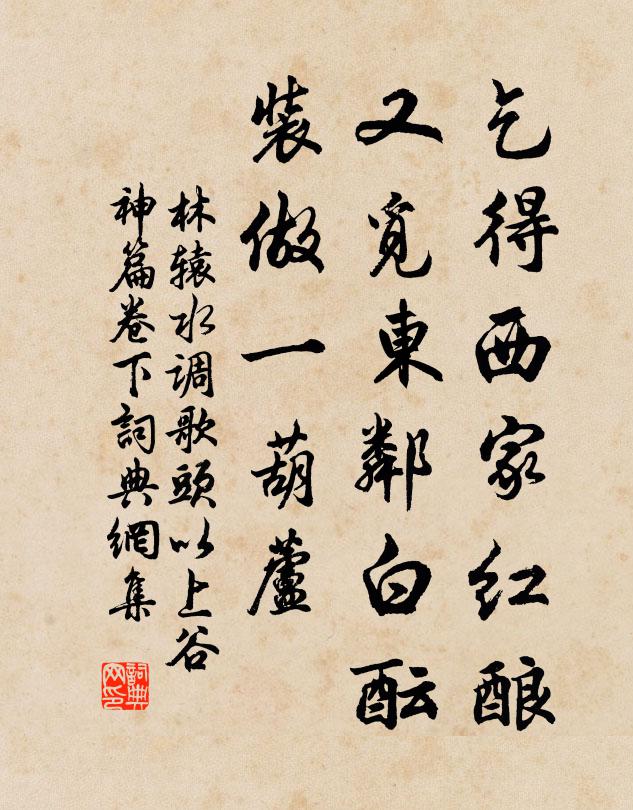 乞得西家红酿
又觅東鄰白酝
裝做一葫蘆
林辕水调歌頭以上谷
神篇卷下詞典網集
詞典网印